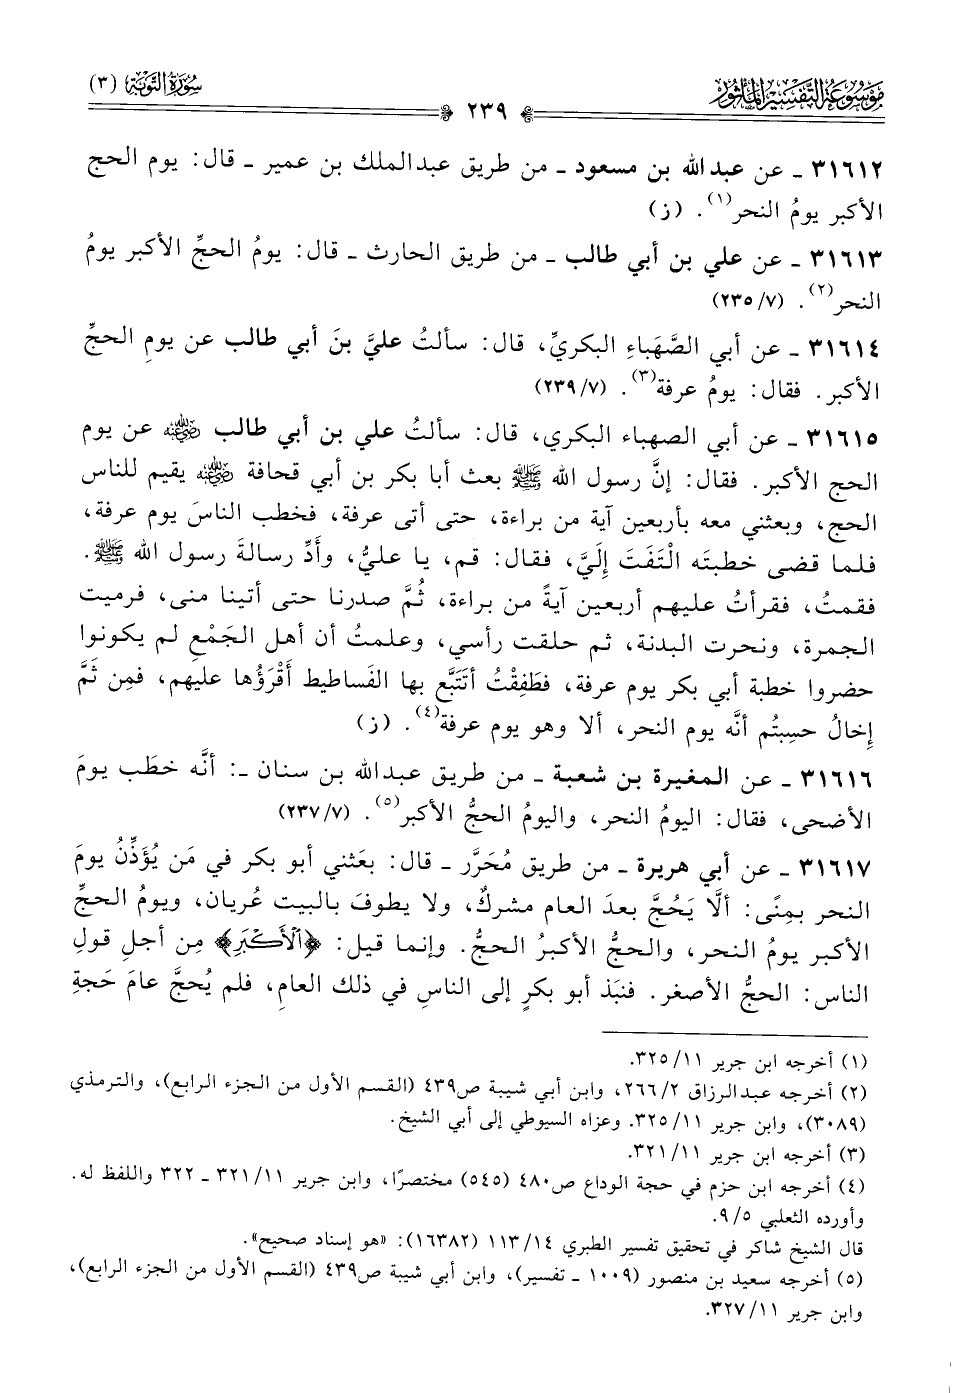 موسوعة التفسير المأثور
سورة التوبة (٣)
٢٣٩
٣١٦١٢ ـ عن عبد الله بن مسعود ـ من طريق عبدالملك بن عمير ـ قال: يوم الحج
الأكبر يومُ النحر(١). (ز)
٣١٦١٣ ـ عن علي بن أبي طالب ـ من طريق الحارث ـ قال: يومُ الحجِّ الأكبر يومُ
النحر(٢). (٧/ ٢٣٥)
٣١٦١٤ ـ عن أبي الصَّهَباءِ البكريِّ، قال: سألتُ عليَّ بنَ أبي طالب عن يومِ الحجِّ
الأكبر. فقال: يومُ عرفة(٣). (٧/ ٢٣٩)
٣١٦١٥ ـ عن أبي الصهباء البكري، قال: سألتُ علي بن أبي طالب رضي الله عنه عن يوم
الحج الأكبر. فقال: إنَّ رسول الله ﷺ بعث أبا بكر بن أبي قحافة رضي الله عنه يقيم للناس
الحج، وبعثني معه بأربعين آية من براءة، حتى أتى عرفة، فخطب الناسَ يوم عرفة،
فلما قضى خطبتَه الْتَفَتَ إِلَيَّ، فقال: قم، يا عليُّ، وأَدِّ رسالةَ رسول الله ﷺ.
فقمتُ، فقرأتُ عليهم أربعين آيةً من براءة، ثُمَّ صدرنا حتى أتينا منى، فرميت
الجمرة، ونحرت البدنة، ثم حلقت رأسي، وعلمتُ أن أهل الجَمْعِ لم يكونوا
حضروا خطبة أبي بكر يوم عرفة، فطَفِقْتُ أتَتَبَّع بها الفَساطيط أَقْرَؤُها عليهم، فمِن ثَمَّ
إخالُ حسِبتُم أنَّه يوم النحر، ألا وهو يوم عرفة(٤). (ز)
٣١٦١٦ ـ عن المغيرة بن شعبة ـ من طريق عبدالله بن سنان ـ: أنَّه خطَب يومَ
الأضحى، فقال: اليومُ النحر، واليومُ الحجُّ الأكبر(٥). (٧/ ٢٣٧)
٣١٦١٧ ـ عن أبي هريرة ـ من طريق مُحَرَّر ـ قال: بعَثني أبو بكر في مَن يُؤَذِّنُ يومَ
النحر بمِنًى: ألَّا يَحُجَّ بعدَ العام مشركٌ، ولا يطوفَ بالبيت عُريان، ويومُ الحجِّ
الأكبر يومُ النحر، والحجُّ الأكبرُ الحجُّ. وإنما قيل: ﴿ٱلْأَكْبَرِ﴾ مِن أجلِ قولِ
الناس: الحجُّ الأصغر. فنبَذ أبو بكرٍ إلى الناسِ في ذلك العامِ، فلم يُحجَّ عامَ حَجةِ
(١) أخرجه ابن جرير ١١/ ٣٢٥.
(٢) أخرجه عبدالرزاق ٢/ ٢٦٦، وابن أبي شيبة ص٤٣٩ (القسم الأول من الجزء الرابع)، والترمذي
(٣٠٨٩)، وابن جرير ١١/ ٣٢٥. وعزاه السيوطي إلى أبي الشيخ.
(٣) أخرجه ابن جرير ١١/ ٣٢١.
(٤) أخرجه ابن حزم في حجة الوداع ص٤٨٠ (٥٤٥) مختصرًا، وابن جرير ١١/ ٣٢١ ـ ٣٢٢ واللفظ له.
وأورده الثعلبي ٥/ ٩.
قال الشيخ شاكر في تحقيق تفسير الطبري ١٤/ ١١٣ (١٦٣٨٢): «هو إسناد صحيح».
(٥) أخرجه سعيد بن منصور (١٠٠٩ ـ تفسير)، وابن أبي شيبة ص٤٣٩ (القسم الأول من الجزء الرابع)،
وابن جرير ١١/ ٣٢٧.